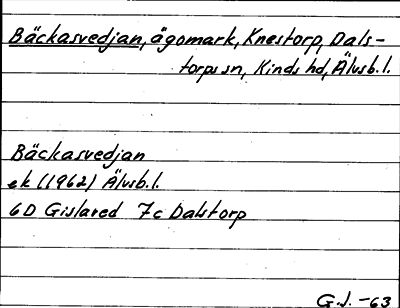 Bäckasvedjan, ägomark, Knestorp, Dals-
torps sn, Kinds hd, Älvsb.l.
Bäckasvedjan
ek (1962) Älvsb.l.
6D Gislaved 7c Dalstorp
G.J. -63